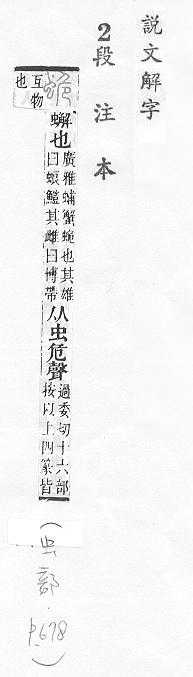 説文解字
2段注本
蛫
蠏也
廣雅蜅蟹蛫也其雄
曰蜋螘其雌曰博帶
从虫危聲
過委切十六部
按以上四篆皆
互物
也
(虫部.p.678)